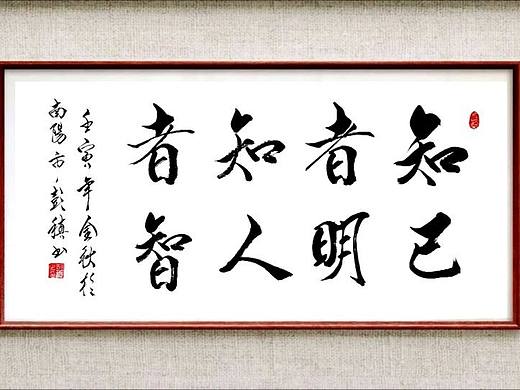 知己
者明
知人
者智
壬寅年金秋於
南陽市彭书